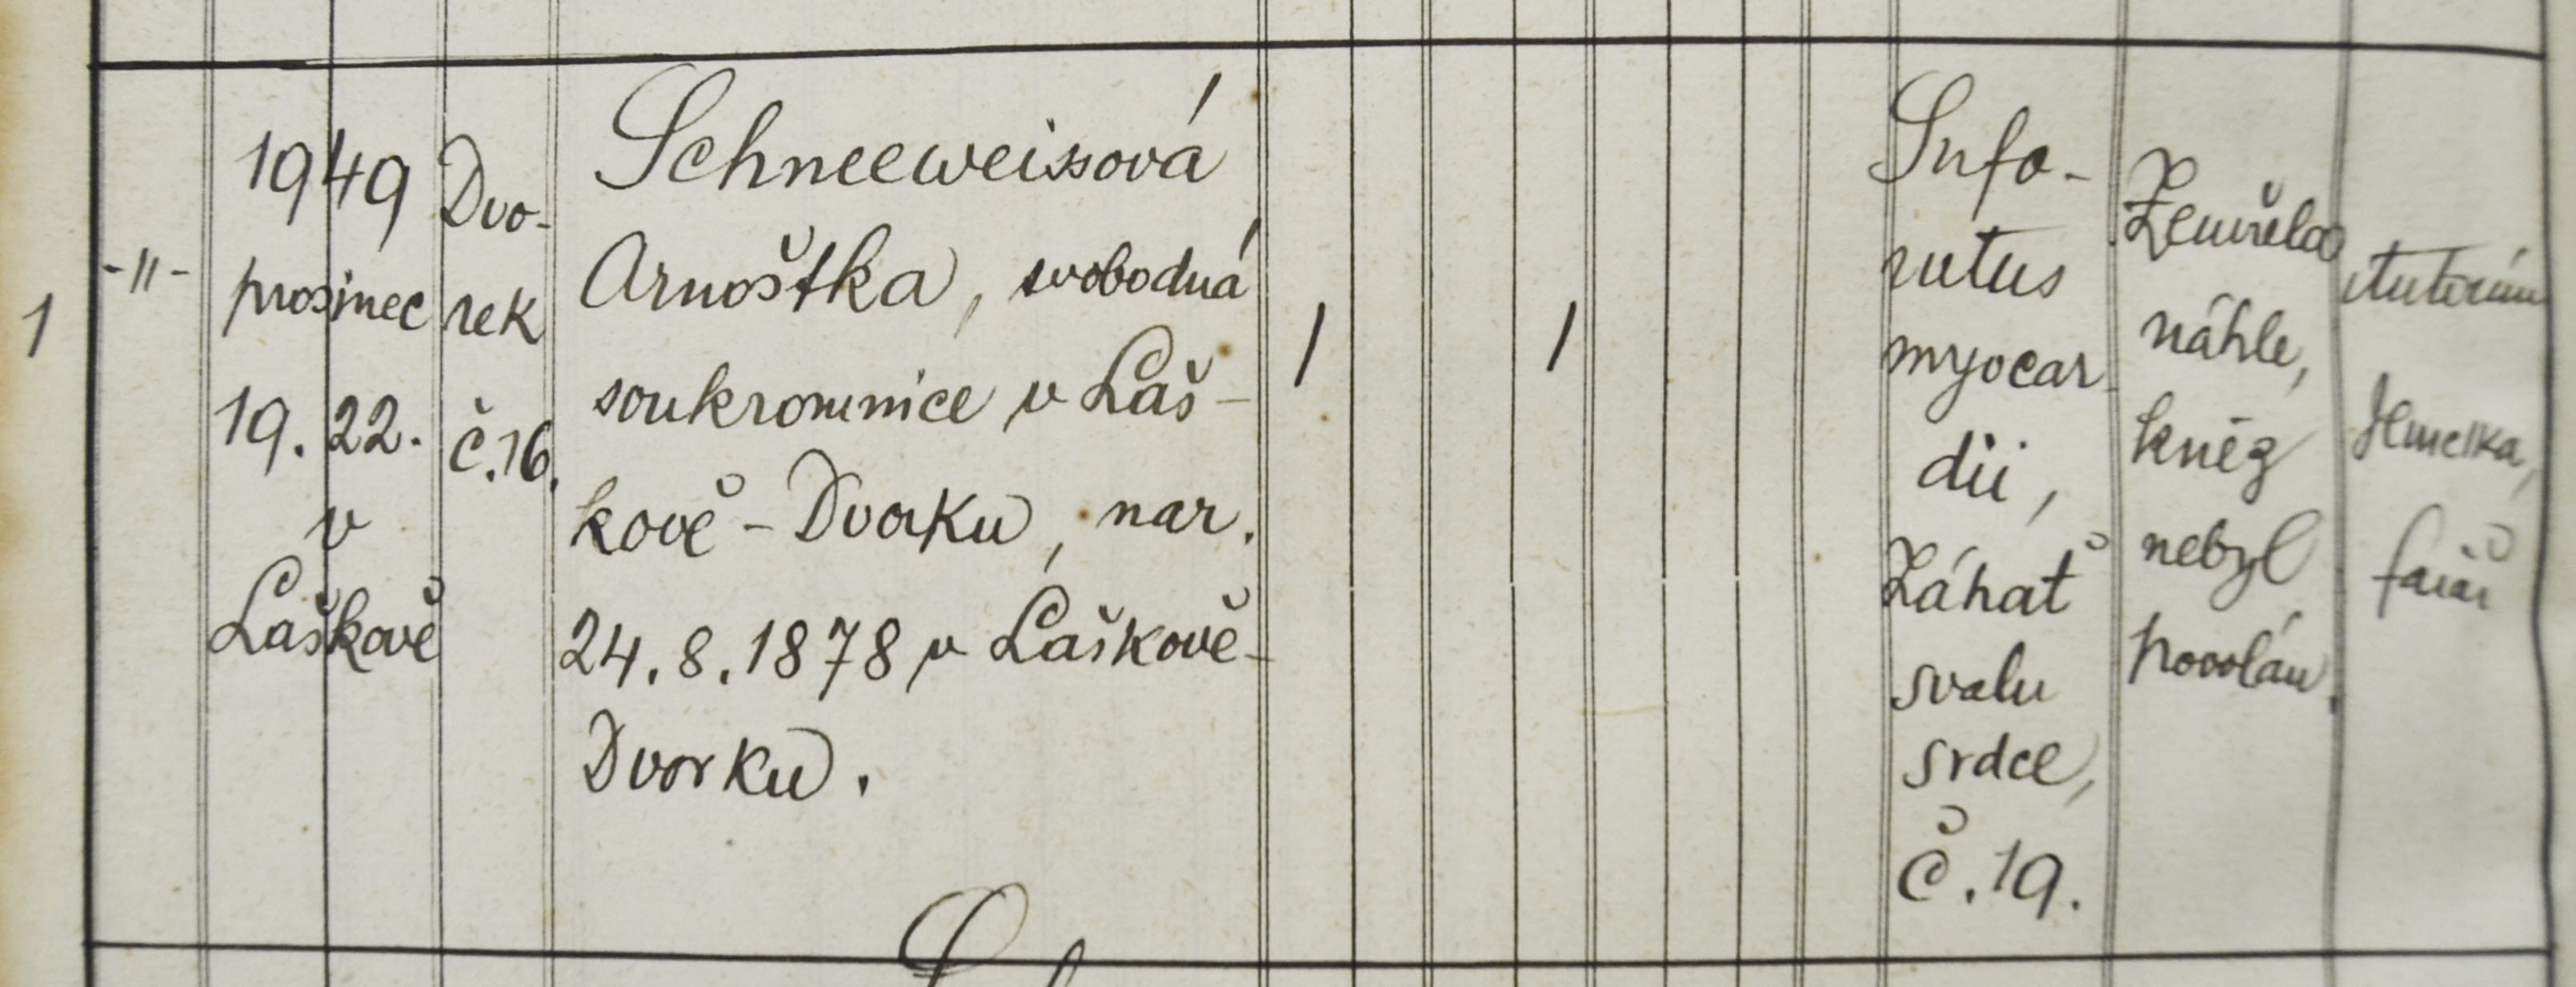 1
-11-
1949
prosinec
19. 22.
v
Laškově
Dvo-
rek
č. 16.
Schneeweissová
Arnoštka, svobodná
soukromnice v Laš-
kově - Dvorku, nar.
24. 8. 1878 v Laškově-
Dvorku.
1
1
Info-
rutus
myocar-
dii,
Záhať
svalu
srdce,
č. 19.
Zemřela
náhle,
kněz
nebyl
povolán.
Antonín
farář